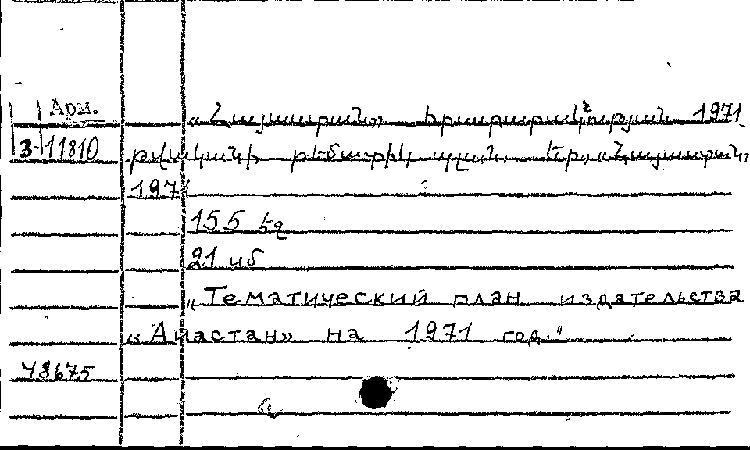 Арм.
«Հայաստան» հրատարակչության 1971
3-11810
թվականի թեմատիկ պլան. Եր., «Հայաստան»,
197
155 էջ
21 սմ
„Тематический план издательства
«Айастан» на 1971 год."
48675